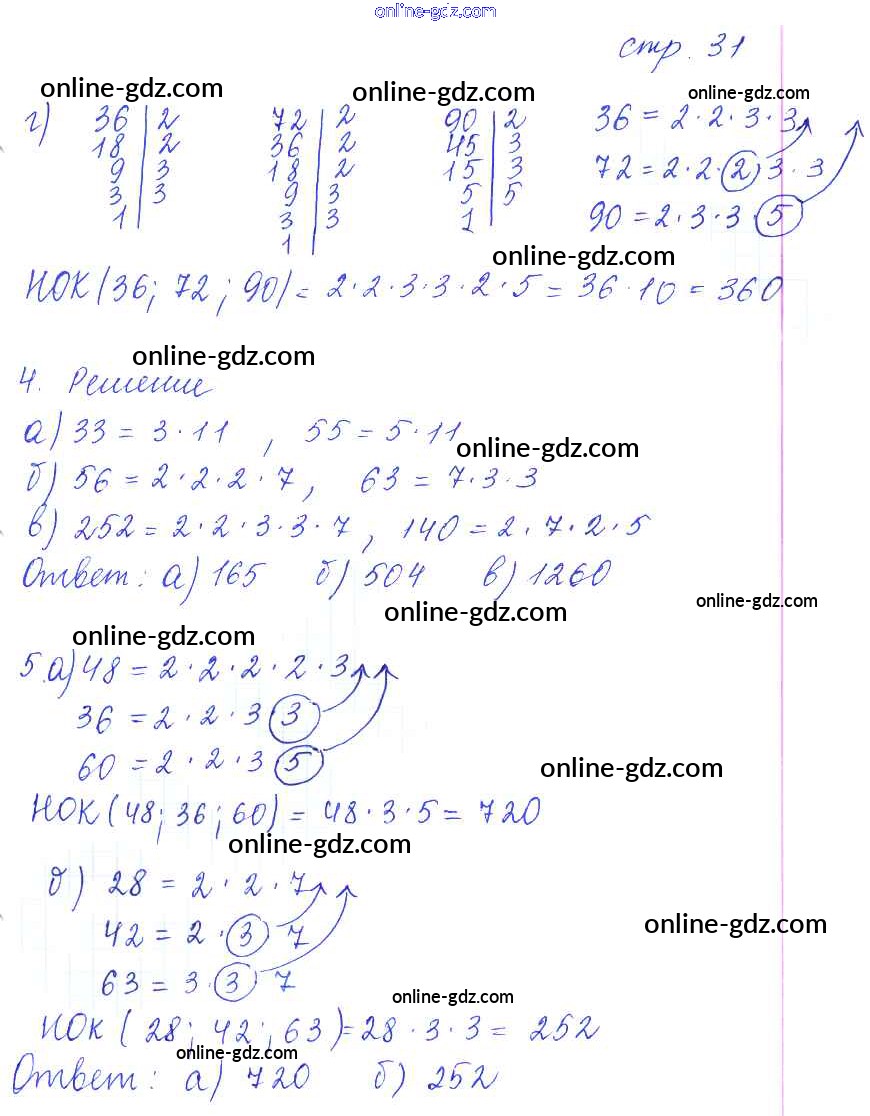 online-gdz.com
стр. 31
online-gdz.com online-gdz.com online-gdz.com
г) 36 | 2 72 | 2 90 | 2 36 = 2 · 2 · 3 · 3
18 | 2 36 | 2 45 | 3
9 | 3 18 | 2 15 | 3 72 = 2 · 2 · 2 · 3 · 3
3 | 3 9 | 3 5 | 5
1 | 3 | 3 1 | 90 = 2 · 3 · 3 · 5
1 |
online-gdz.com
НОК (36; 72; 90) = 2 · 2 · 3 · 3 · 2 · 5 = 36 · 10 = 360
online-gdz.com
4. Решение
а) 33 = 3 · 11 , 55 = 5 · 11
online-gdz.com
б) 56 = 2 · 2 · 2 · 7 , 63 = 7 · 3 · 3
в) 252 = 2 · 2 · 3 · 3 · 7 , 140 = 2 · 7 · 2 · 5
Ответ: а) 165 б) 504 в) 1260
online-gdz.com
online-gdz.com
online-gdz.com
5. а) 48 = 2 · 2 · 2 · 2 · 3
36 = 2 · 2 · 3 3
60 = 2 · 2 · 3 5
online-gdz.com
НОК (48; 36; 60) = 48 · 3 · 5 = 720
online-gdz.com
б) 28 = 2 · 2 · 7
online-gdz.com
42 = 2 · 3 7
63 = 3 · 3 7
online-gdz.com
НОК (28; 42; 63) = 28 · 3 · 3 = 252
online-gdz.com
Ответ: а) 720 б) 252